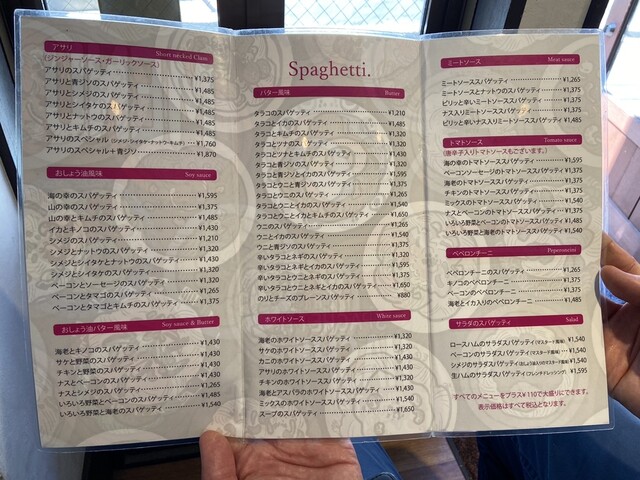 アサリ Short necked Clam
(ジンジャーソース・ガーリックソース)
アサリのスパゲッティ ¥1,375
アサリと青ジソのスパゲッティ ¥1,485
アサリとシメジのスパゲッティ ¥1,485
アサリとシイタケのスパゲッティ ¥1,485
アサリとナットウのスパゲッティ ¥1,485
アサリとキムチのスパゲッティ ¥1,485
アサリのスペシャル(シメジ・シイタケ・ナットウ・キムチ) ¥1,760
アサリのスペシャル+青ジソ ¥1,870
おしょうゆ風味 Soy sauce
海の幸のスパゲッティ ¥1,595
山の幸のスパゲッティ ¥1,375
山の幸とキムチのスパゲッティ ¥1,485
イカとキノコのスパゲッティ ¥1,430
シメジのスパゲッティ ¥1,210
シメジとナットウのスパゲッティ ¥1,320
シメジとシイタケとナットウのスパゲッティ ¥1,430
シメジとシイタケのスパゲッティ ¥1,320
ベーコンとソーセージのスパゲッティ ¥1,320
ベーコンとタマゴのスパゲッティ ¥1,265
ベーコンとタマゴとキムチのスパゲッティ ¥1,375
おしょうゆバター風味 Soy sauce & Butter
海老とキノコのスパゲッティ ¥1,430
サケと野菜のスパゲッティ ¥1,430
チキンと野菜のスパゲッティ ¥1,430
ナスとベーコンのスパゲッティ ¥1,430
ナスとシメジのスパゲッティ ¥1,265
いろいろ野菜とベーコンのスパゲッティ ¥1,485
いろいろ野菜と海老のスパゲッティ ¥1,540
Spaghetti.
バター風味 Butter
タラコのスパゲッティ ¥1,210
タラコとイカのスパゲッティ ¥1,485
タラコとキムチのスパゲッティ ¥1,320
タラコとツナのスパゲッティ ¥1,320
タラコとツナとキムチのスパゲッティ ¥1,430
タラコと青ジソのスパゲッティ ¥1,320
タラコと青ジソとイカのスパゲッティ ¥1,595
タラコとウニと青ジソのスパゲッティ ¥1,375
タラコとウニのスパゲッティ ¥1,265
タラコとウニとイカのスパゲッティ ¥1,540
タラコとウニとイカとキムチのスパゲッティ ¥1,650
ウニのスパゲッティ ¥1,265
ウニとイカのスパゲッティ ¥1,430
ウニと青ジソのスパゲッティ ¥1,375
辛いタラコとネギのスパゲッティ ¥1,320
辛いタラコとネギとイカのスパゲッティ ¥1,595
辛いタラコとウニとネギのスパゲッティ ¥1,375
辛いタラコとウニとネギとイカのスパゲッティ ¥1,650
のりとチーズのプレーンスパゲッティ ¥880
ホワイトソース White sauce
海老のホワイトソーススパゲッティ ¥1,320
サケのホワイトソーススパゲッティ ¥1,320
カニのホワイトソーススパゲッティ ¥1,430
アサリのホワイトソーススパゲッティ ¥1,430
チキンのホワイトソーススパゲッティ ¥1,320
海老とアスパラのホワイトソーススパゲッティ ¥1,430
ミックスのホワイトソーススパゲッティ ¥1,540
スープのスパゲッティ ¥1,650
ミートソース Meat sauce
ミートソーススパゲッティ ¥1,265
ミートソースとナットウのスパゲッティ ¥1,375
ピリッと辛いミートソーススパゲッティ ¥1,375
ナス入りミートソーススパゲッティ ¥1,375
ピリッと辛いナス入りミートソーススパゲッティ ¥1,485
トマトソース Tomato sauce
(唐辛子入りトマトソースもございます。)
海の幸のトマトソーススパゲッティ ¥1,595
ベーコンソーセージのトマトソーススパゲッティ ¥1,375
海老のトマトソーススパゲッティ ¥1,375
チキンのトマトソーススパゲッティ ¥1,375
ミックスのトマトソーススパゲッティ ¥1,540
ナスとベーコンのトマトソーススパゲッティ ¥1,375
いろいろ野菜とベーコンのトマトソーススパゲッティ ¥1,485
いろいろ野菜と海老のトマトソーススパゲッティ ¥1,540
ペペロンチーニ Peperoncini
ペペロンチーニのスパゲッティ ¥1,265
キノコのペペロンチーニ ¥1,375
ベーコンのペペロンチーニ ¥1,375
海老とイカ入りのペペロンチーニ ¥1,485
サラダのスパゲッティ Salad
ロースハムのサラダスパゲッティ(マスタード風味) ¥1,540
ベーコンのサラダスパゲッティ(マスタード風味) ¥1,540
シメジのサラダスパゲッティ(おしょうゆ入りのマスタード風味) ¥1,540
生ハムのサラダスパゲッティ(フレンチドレッシング) ¥1,595
すべてのメニューをプラス¥110で大盛りにできます。
表示価格はすべて税込となります。